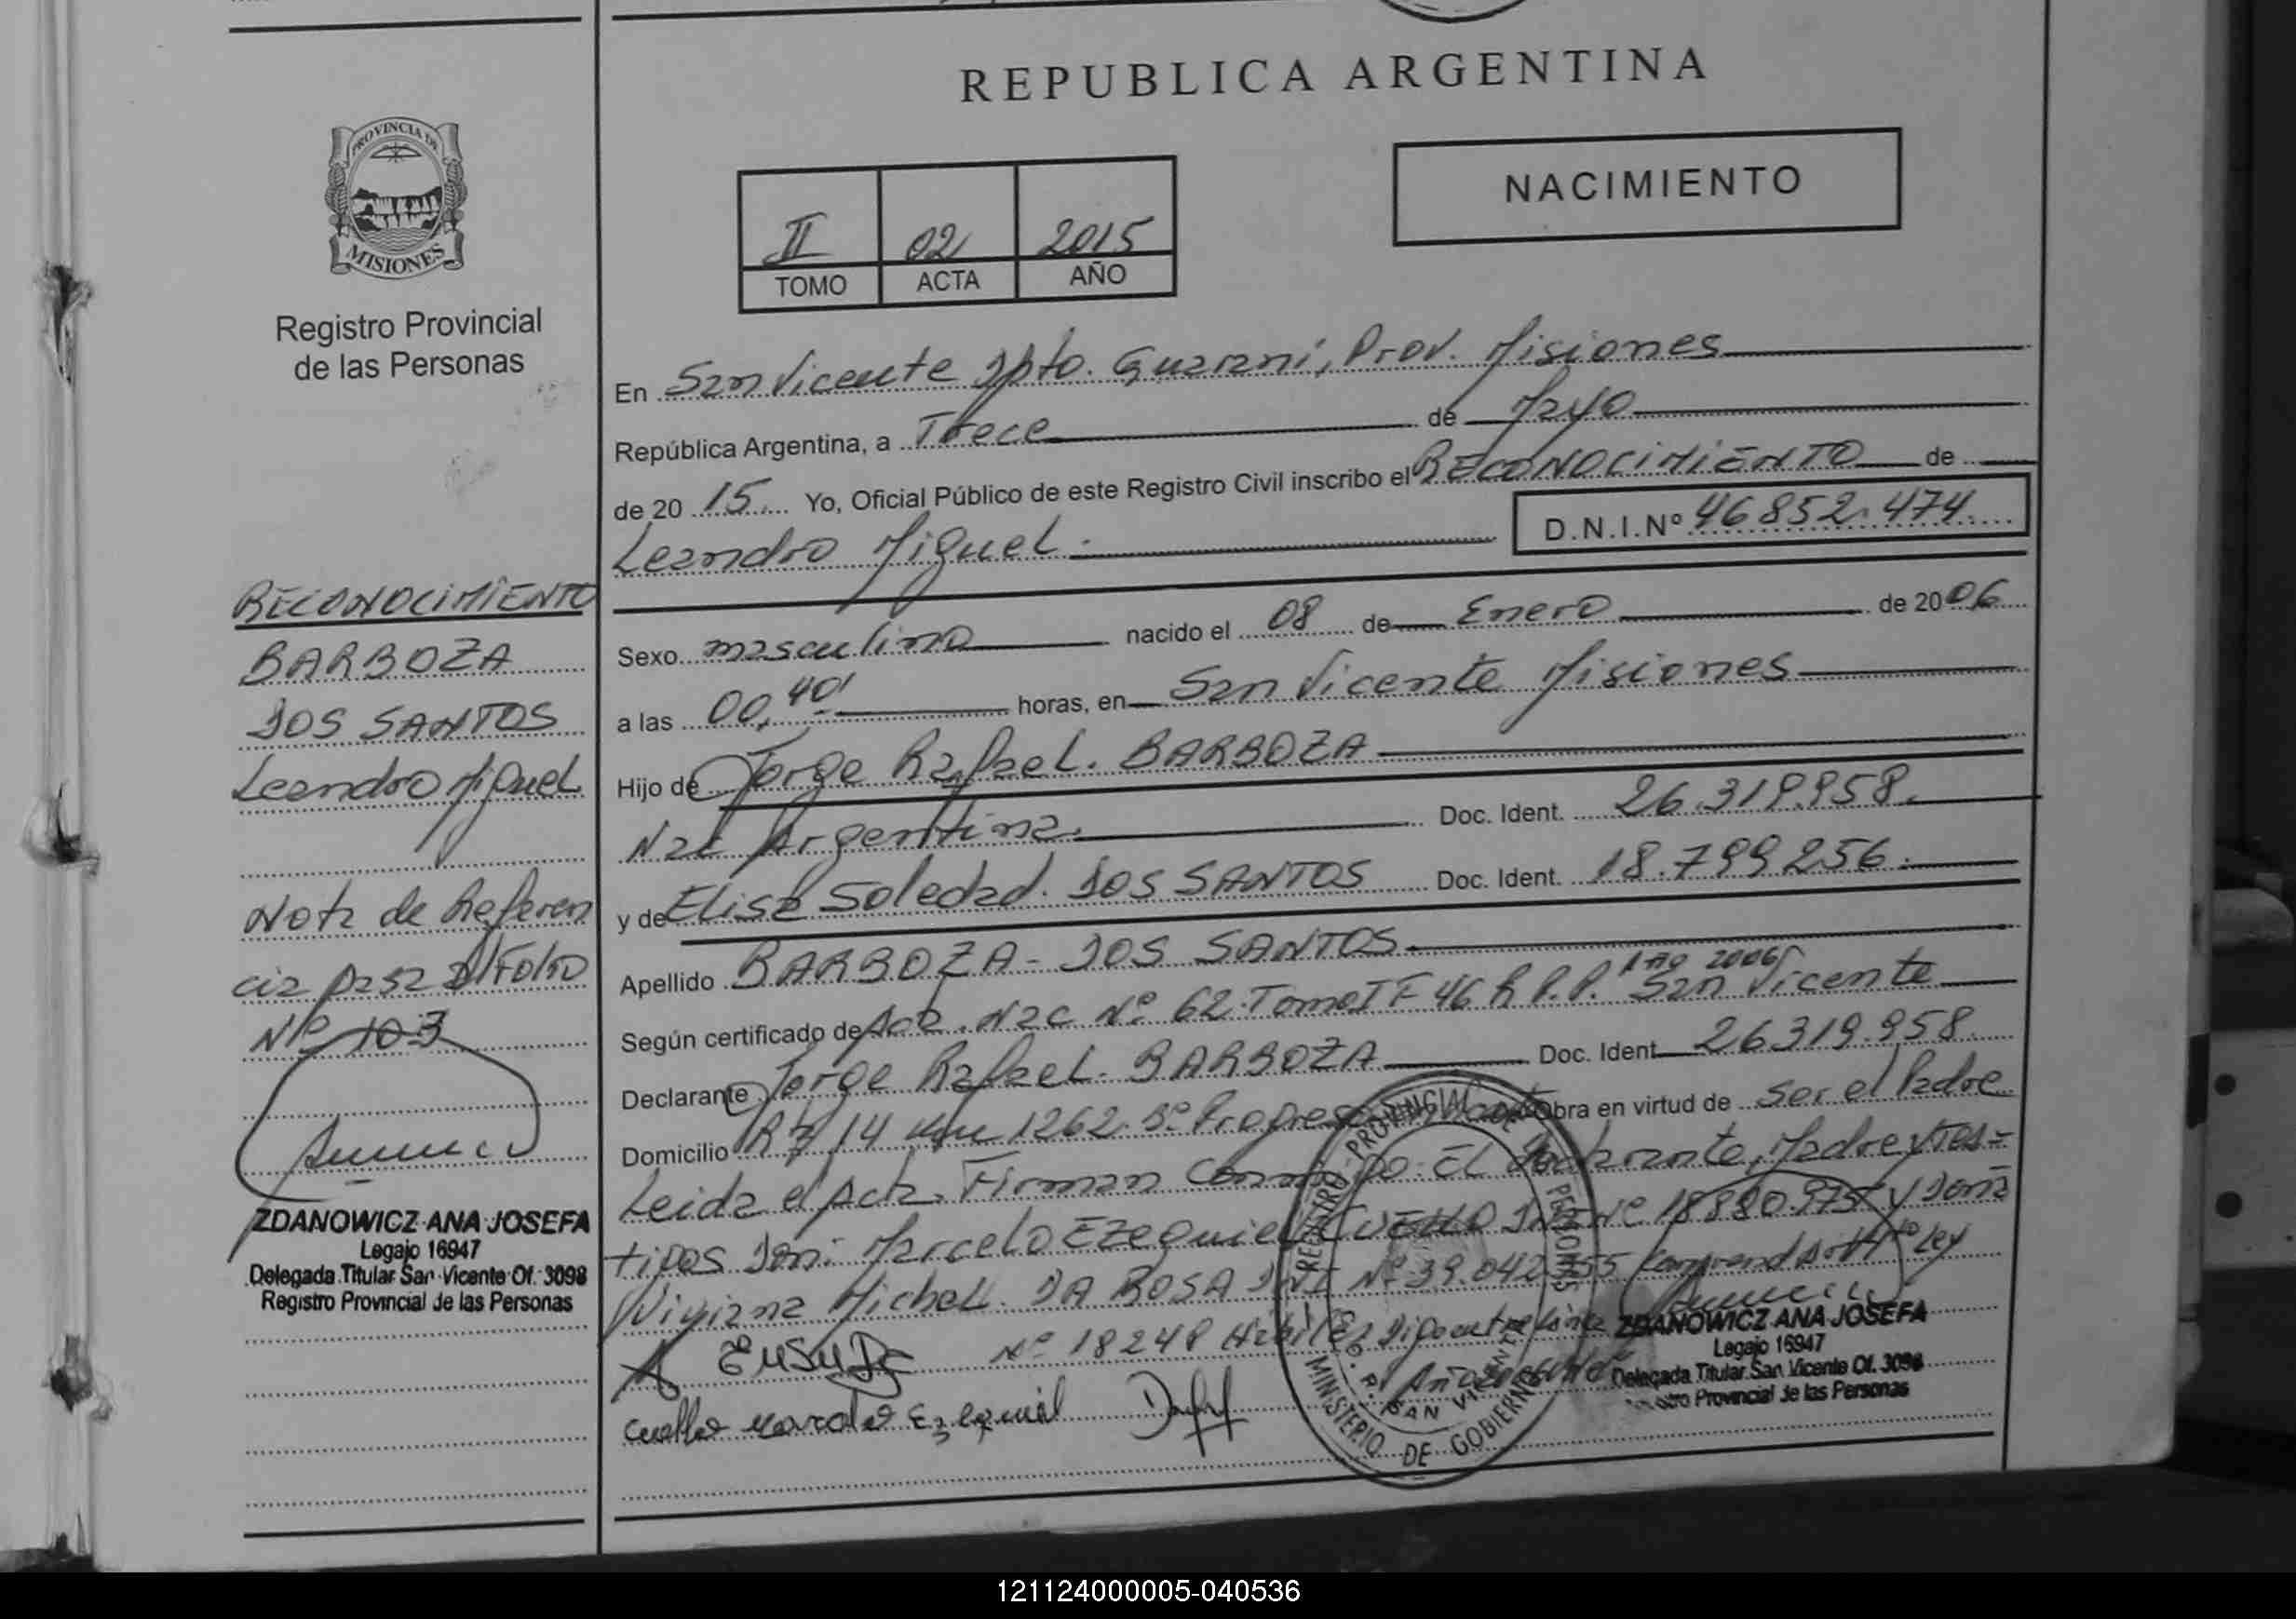 REPUBLICA ARGENTINA
PROVINCIA DE
MISIONES
Registro Provincial
de las Personas
II 02 2015
TOMO ACTA AÑO
NACIMIENTO
En San Vicente Dpto. Guarani, Prov. Misiones
República Argentina, a Trece de Mayo
de 20 15. Yo, Oficial Público de este Registro Civil inscribo el RECONOCIMIENTO de
Leandro Miguel.
D.N.I.Nº 46852.474
Sexo masculino nacido el 08 de Enero de 2006
a las 00,40' horas, en San Vicente Misiones
Hijo de Jorge Rafael. BARBOZA
Nac Argentina. Doc. Ident. 26.319.958.
y de Elisa Soledad. DOS SANTOS Doc. Ident. 18.799256.
Apellido BARBOZA - DOS SANTOS
Año 2006
Según certificado de Acta. Nac Nº 62 Tomo I F 46 R.P.P. San Vicente
Declarante Jorge Rafael. BARBOZA Doc. Ident 26319.958
Domicilio 14 Km 1262. Obra en virtud de ser el Padre
Leida el Acta. Firman El declarante, Madre y tes=
tigos Don: Marcelo Ezequiel CUELLO y Doña
Viviana Michel. DA ROSA DNI Nº 39.042755 Ley
Nº 18248
Cuello Marcelo Ezequiel
RECONOCIMIENTO
BARBOZA
DOS SANTOS
Leandro Miguel
Nota de Referen
cia pasa al Folio
Nº 103
ZDANOWICZ ANA JOSEFA
Legajo 16947
Delegada Titular San Vicente Of. 3098
Registro Provincial de las Personas
ZDANOWICZ ANA JOSEFA
Legajo 16947
Delegada Titular San Vicente Of. 3098
Provincial de las Personas
REGISTRO PROVINCIAL DE PERSONAS
SAN VICENTE
MINISTERIO DE GOBIERNO
121124000005-040536